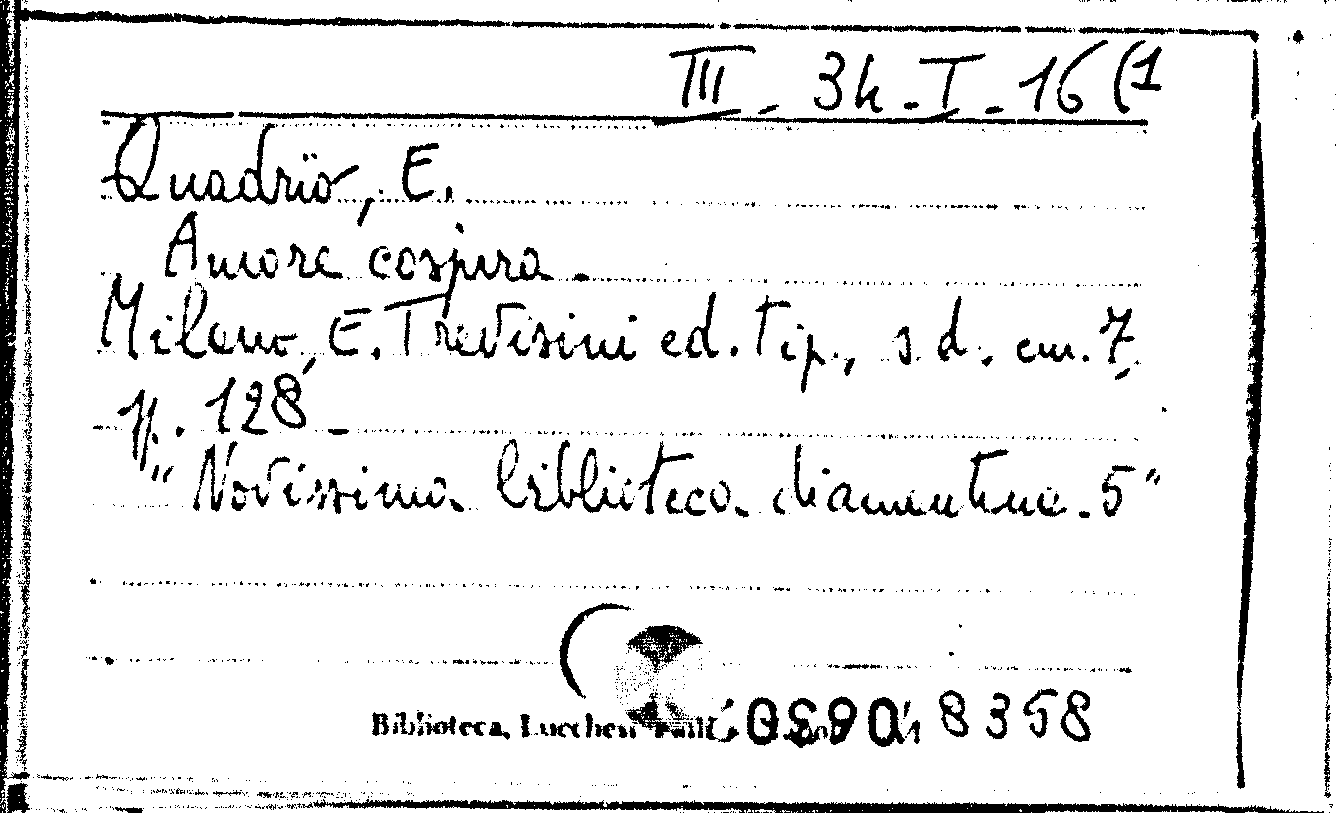 III - 34 - I - 16 (1
Quadrio, E.
Amore cospira.
Milano, E. Trevisini ed. tip., s.d. cm. 7,
p. 128 -
"Novissima biblioteca diamantina - 5"
Biblioteca, Lucchesi 8358